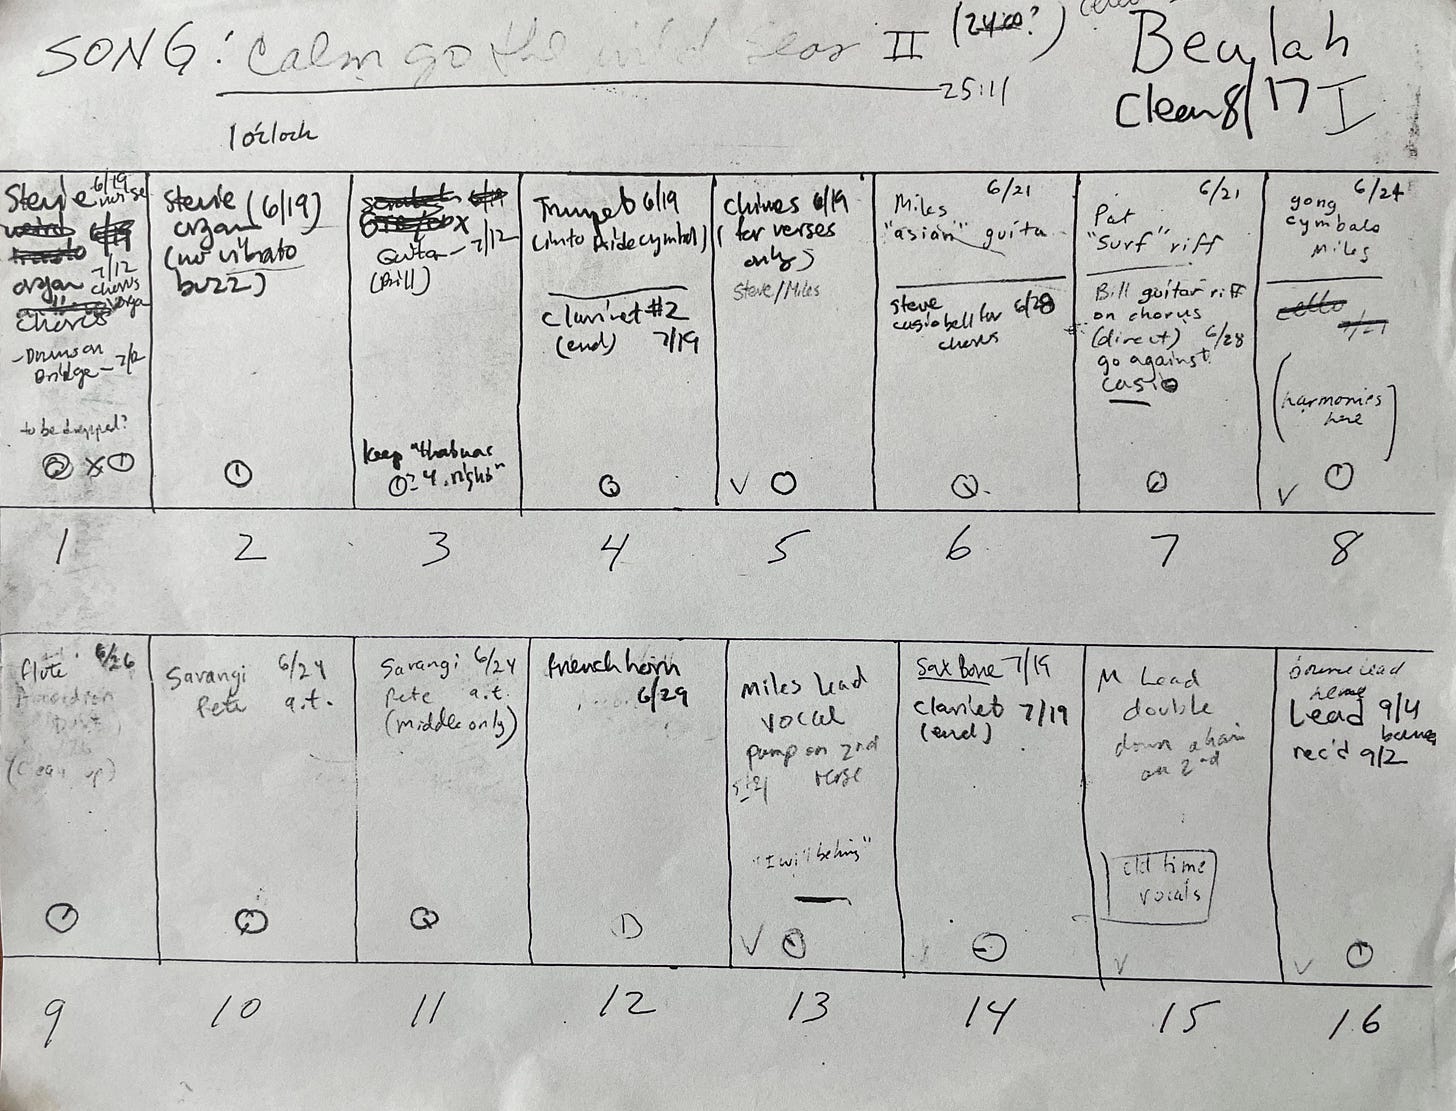 SONG: Calm go the wild seas II
Beulah
Clean 8/17 I
25:11
1 o'clock
Stevie 6/19
organ 7/12 chorus
chorus
-Drums on
Bridge - 7/12
to be dropped?
Stevie (6/19)
organ
(no vibrato
buzz)
Guitar - 7/12
(Bill)
keep "that was
Trumpet 6/19
(into ride cymbal)
clarinet #2
(end) 7/19
chimes 6/19
(for verses
only)
Steve/Miles
6/21
Miles
"asian" guita
steve
casio bell for 6/28
chorus
6/21
Pat
"Surf" riff
Bill guitar riff
on chorus
(direct) 6/28
go against
casio
6/24
gong
cymbals
Miles
cello
(harmonies
here)
1 2 3 4 5 6 7 8
flute 6/26
Accordion
(clean up)
Sarangi 6/24
Pete a.t.
Sarangi 6/24
Pete a.t.
(middle only)
french horn
6/29
Miles Lead
vocal
pump on 2nd
verse
Sax Bone 7/19
clarinet 7/19
(end)
M Lead
double
down a hair
on 2nd
old time
vocals
Lead 9/4
rec'd 9/2
9 10 11 12 13 14 15 16